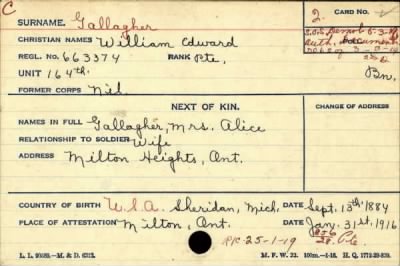 C
SURNAME. Gallagher
CARD NO.
2.
CHRISTIAN NAMES William Edward
REGL. NO. 663374 RANK Pte.
UNIT 164th. Bn.
FORMER CORPS Nil.
NEXT OF KIN.
CHANGE OF ADDRESS
NAMES IN FULL Gallagher, Mrs. Alice
RELATIONSHIP TO SOLDIER Wife
ADDRESS Milton Heights, Ont.
COUNTRY OF BIRTH U.S.A. Sheridan, Mich. DATE Sept. 13th. 1884
PLACE OF ATTESTATION Milton, Ont. DATE Jan. 31st. 1916
R/C 25-1-19
L. L. 20593.—M. & D. M. F. W. 22. 100m.—1-16. H. Q. 1772-39-839.